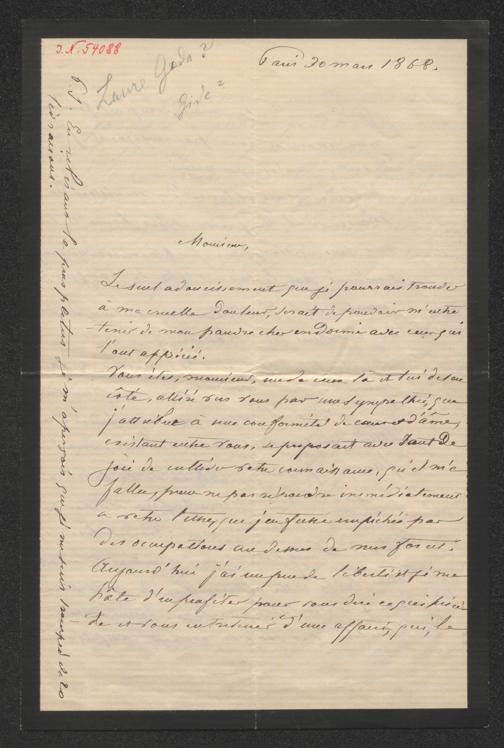 J.N. 54088
Laure
Paris 20 mars 1868.
Monsieur,
Le seul adoucissement que je pourrais trouver
à ma cruelle douleur, serait de pouvoir m'entre
tenir de mon pauvre cher endormi avec ceux qui
l'ont apprécié.
Vous êtes, monsieur, un de ceux là et lui de son
côté, attiré vers vous par une sympathie, que
j'attribue à une conformité de cœur et d'âme,
existant entre vous, se proposait avec tant De
joie de cultiver votre connaissance, qu'il m'a
fallu, pour ne pas répondre immédiatement
à votre lettre, que j'en fusse empêchée par
des occupations au dessus de mes forces.
Aujourd'hui j'ai un peu de liberté et je me
hâte d'en profiter pour vous dire ce qui précè
de et vous entretenir d'une affaire, qui, le
P S En relisant la
m'aperçois que je me suis trompé de 20
livraisons.